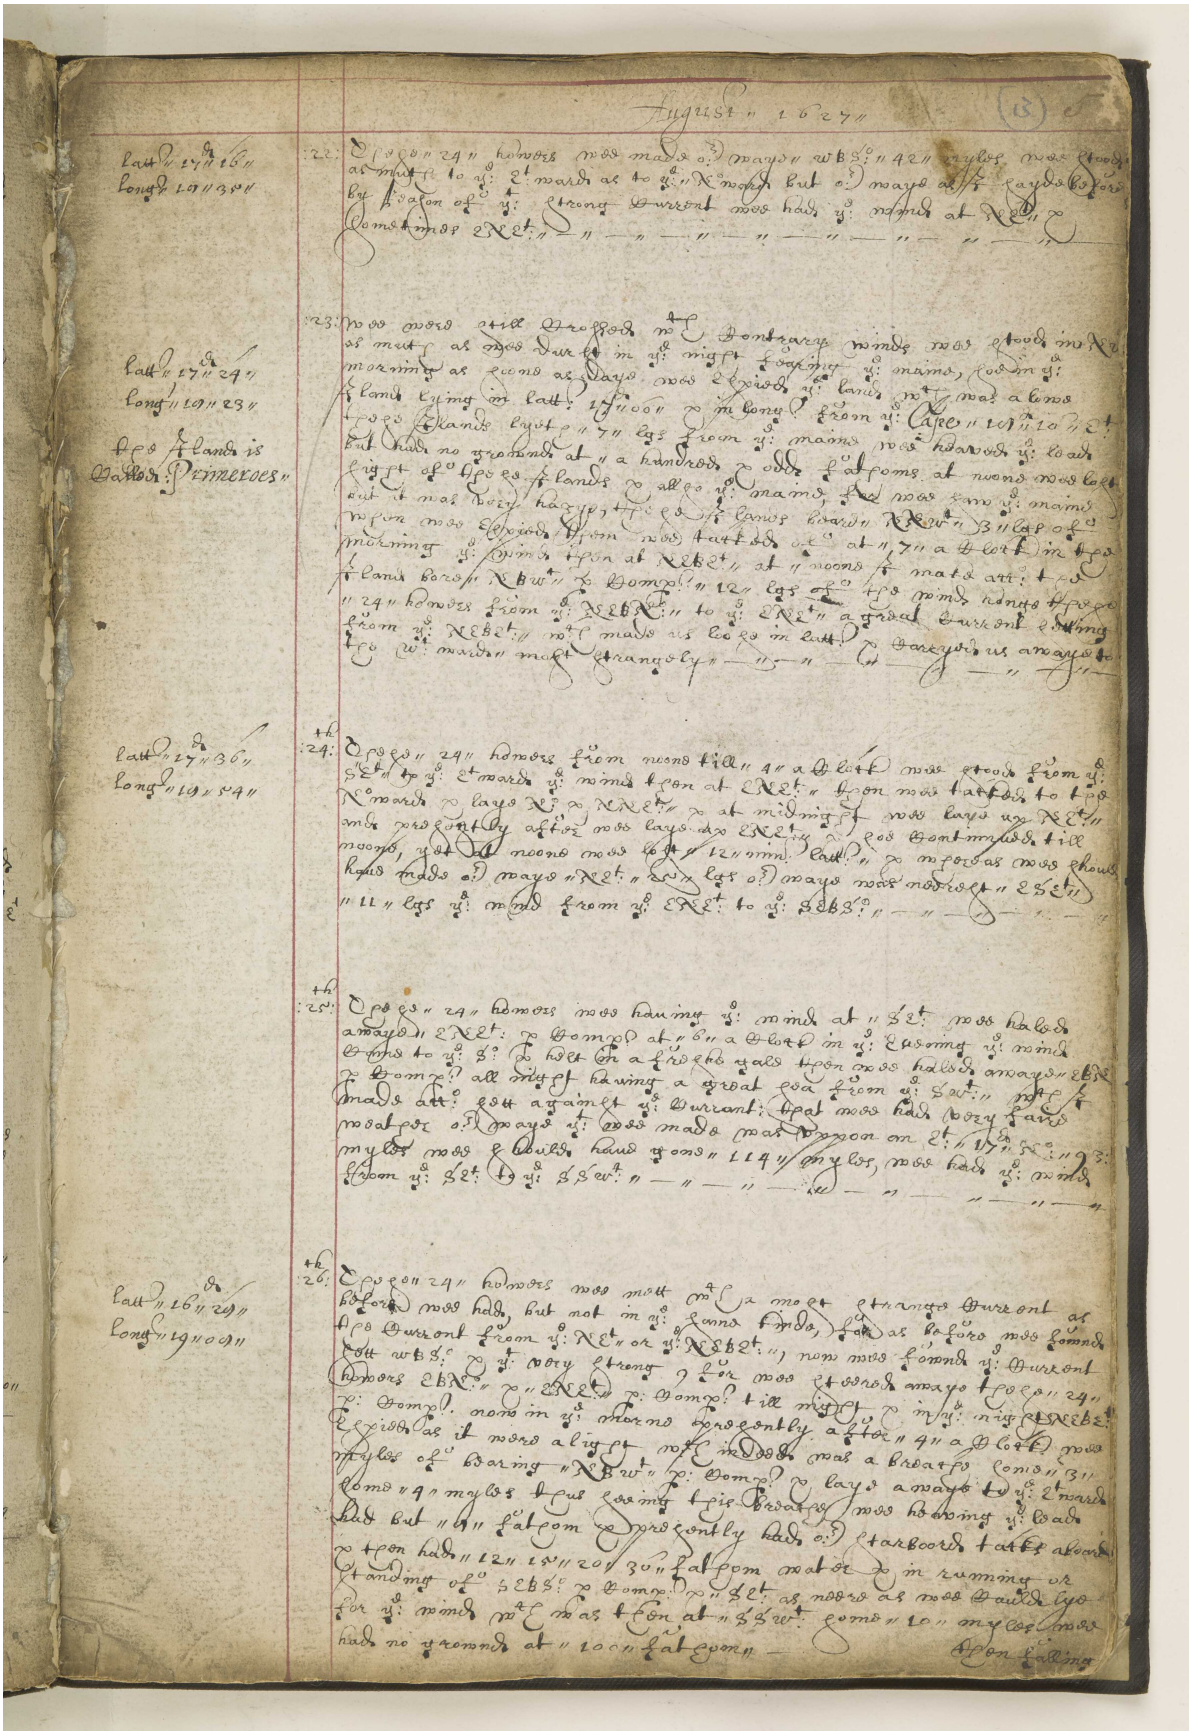 August „ 1627 „
(13)
latt: „ 17d „ 16 „
long: „ 19 „ 35 „
:22: These „ 24 „ howers wee made or waye „ WBSo: „ 42 „ myles wee stood
as much to ye: Et: ward as to ye: „ No ward but or waye as I sayde before
by reason of yt: strong Current wee had ye: wind at NEt „ &
sometimes ENEt: „ — „ — „ — „ — „ — „ — „ — „ — „ —
latt: „ 17d „ 24 „
long: „ 19 „ 23 „
the Iland is
Called: Primeroes „
:23: Wee were still Crossed wth Contrary winds wee stood in NE:
as much as wee durst in ye: night fearing ye: maine, soe in ye:
morning as soone as daye wee Espied ye: land wch was a lowe
Iland lying in latt: 17d „ 00 „ & in long: from ye: Cape „ 19d „ 10 „ Et:
these Ilands lyeth „ 7 „ lgs from ye: maine wee heaved ye: lead
but had no grownd at „ a hundred & odd fathoms at noone wee lost
sight of these Ilands & allso ye: maine, for wee saw ye: maine
but it was very hazye, these Ilands beard „ NNWt „ 3 „ lgs of
when wee Espied them wee tacked of at „ 7 „ a Clock in the
morning ye: wind then at NEBEt: „ at „ noone I make acco: the
Iland bore „ NBWt „ p Comp: „ 12 „ lgs of the wind hange these
„ 24 „ howers from ye: NEBNo: „ to ye: ENEt „ a great Current setting
from ye: NEBEt: „ wch made us loose in latt: & Carryed us awaye to
the Wt: ward „ most strangely „ — „ — „ — „ — „ — „ —
latt: „ 17d „ 36 „
long: „ 19 „ 54 „
th
:24: These „ 24 „ howers from noone till „ 4 „ a Clock wee stood from ye:
SEt „ to ye: Et ward ye: wind then at ENEt: „ then wee tacked to the
No ward & laye No: & NNEt: „ & at midnight wee laye up NEt: „
and presently after wee laye up ENEt: „ & soe Continnued till
noone, yet at noone wee lost „ 12 „ min: latt: „ & whereas wee should
have made or waye „ NEt: „ 25 „ lgs or waye was neerest „ ESEt „
„ 11 „ lgs ye: wind from ye: ENEt: to ye: SEBSo: „ — „ — „ — „ — „
th
:25: These „ 24 „ howers wee having ye: wind at „ SEt: wee haled
awaye „ ENEt: p Comp: at „ 6 „ a Clock in ye: Evening ye: wind
Came to ye: So: & kelt in a freshe gale then wee haled awaye „ EBNo
p Comp: all night having a great sea from ye: SWt: „ wch I
made acco: sett against ye: Currant: that wee had very faire
weather or waye yt: wee made was uppon an Et: „ 17d „ No: „ 93:
myles wee should have gone „ 114 „ myles, wee had ye: wind
from ye: SEt: to ye: SSWt: „ — „ — „ — „ — „ — „ — „ — „
latt: „ 16d „ 29 „
long: „ 19 „ 09 „
th
:26: These „ 24 „ howers wee mett wth a most strange Current as
before wee had, but not in ye: same kinde, for as before wee fownd
the Current from ye: NEt „ or ye: NEBEt: „, now wee fownd ye: Current
sett WBSo: & yt: very strong, for wee steered awaye these „ 24 „
howers EBNo: „ & „ ENEt: „ p: Comp: till night & in ye: night NEBEt:
p: Comp: now in ye: morne presently after „ 4 „ a Clock wee
Espied as it were a light wch indeed was a breache some „ 3 „
myles of bearing „ NBWt „ p: Comp: & laye awaye to ye: Et ward
some „ 4 „ myles thus seeing this breache wee heaving ye: lead
had but „ 9 „ fathom & presently had or starboord tacks aboard
& then had „ 12 „ 15 „ 20 „ 30 „ fathom water & in running or
standing of SEBSo: p Comp: & „ SEt: as neere as wee Could lye
for ye: wind wch was then at „ SSWt: some „ 10 „ myles wee
had no grownd at „ 100 „ fathom „ —
then falling